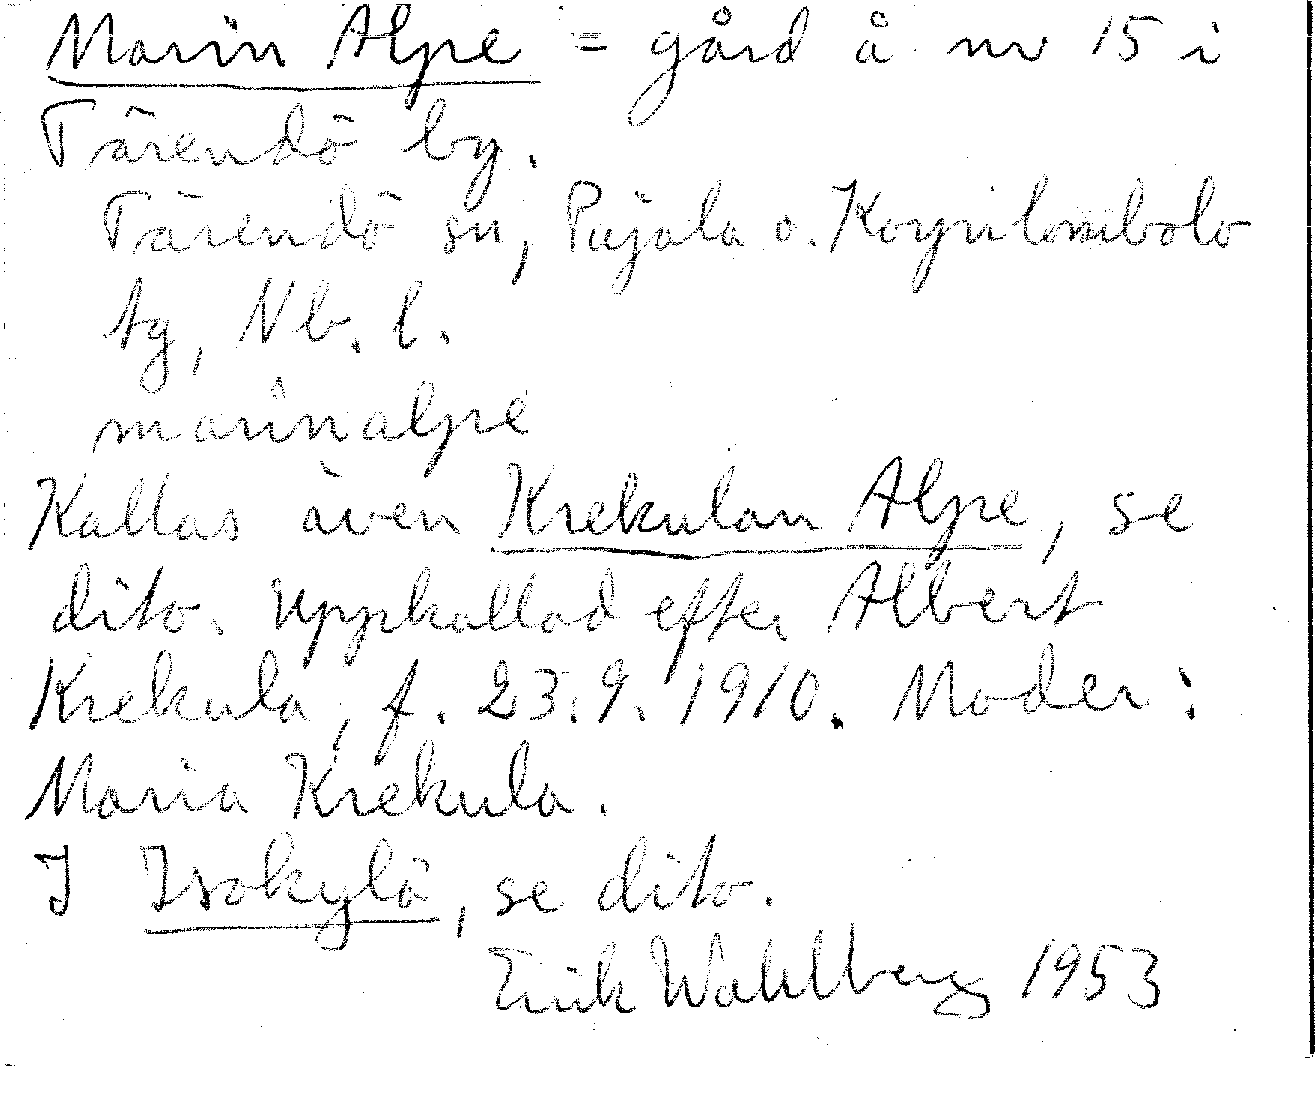 Marin Alpe = gård å nr 15 i
Tärendö by.
Tärendö sn, Pajala o. Korpilombolo
tg, Nb. l.
marìnalpe
Kallas även Krekulan Alpe, se
dito. Uppkallad efter Albert
Krekula, f. 23.9.1910. Moder:
Maria Krekula.
I Isokylä, se dito.
Erik Wahlberg 1953